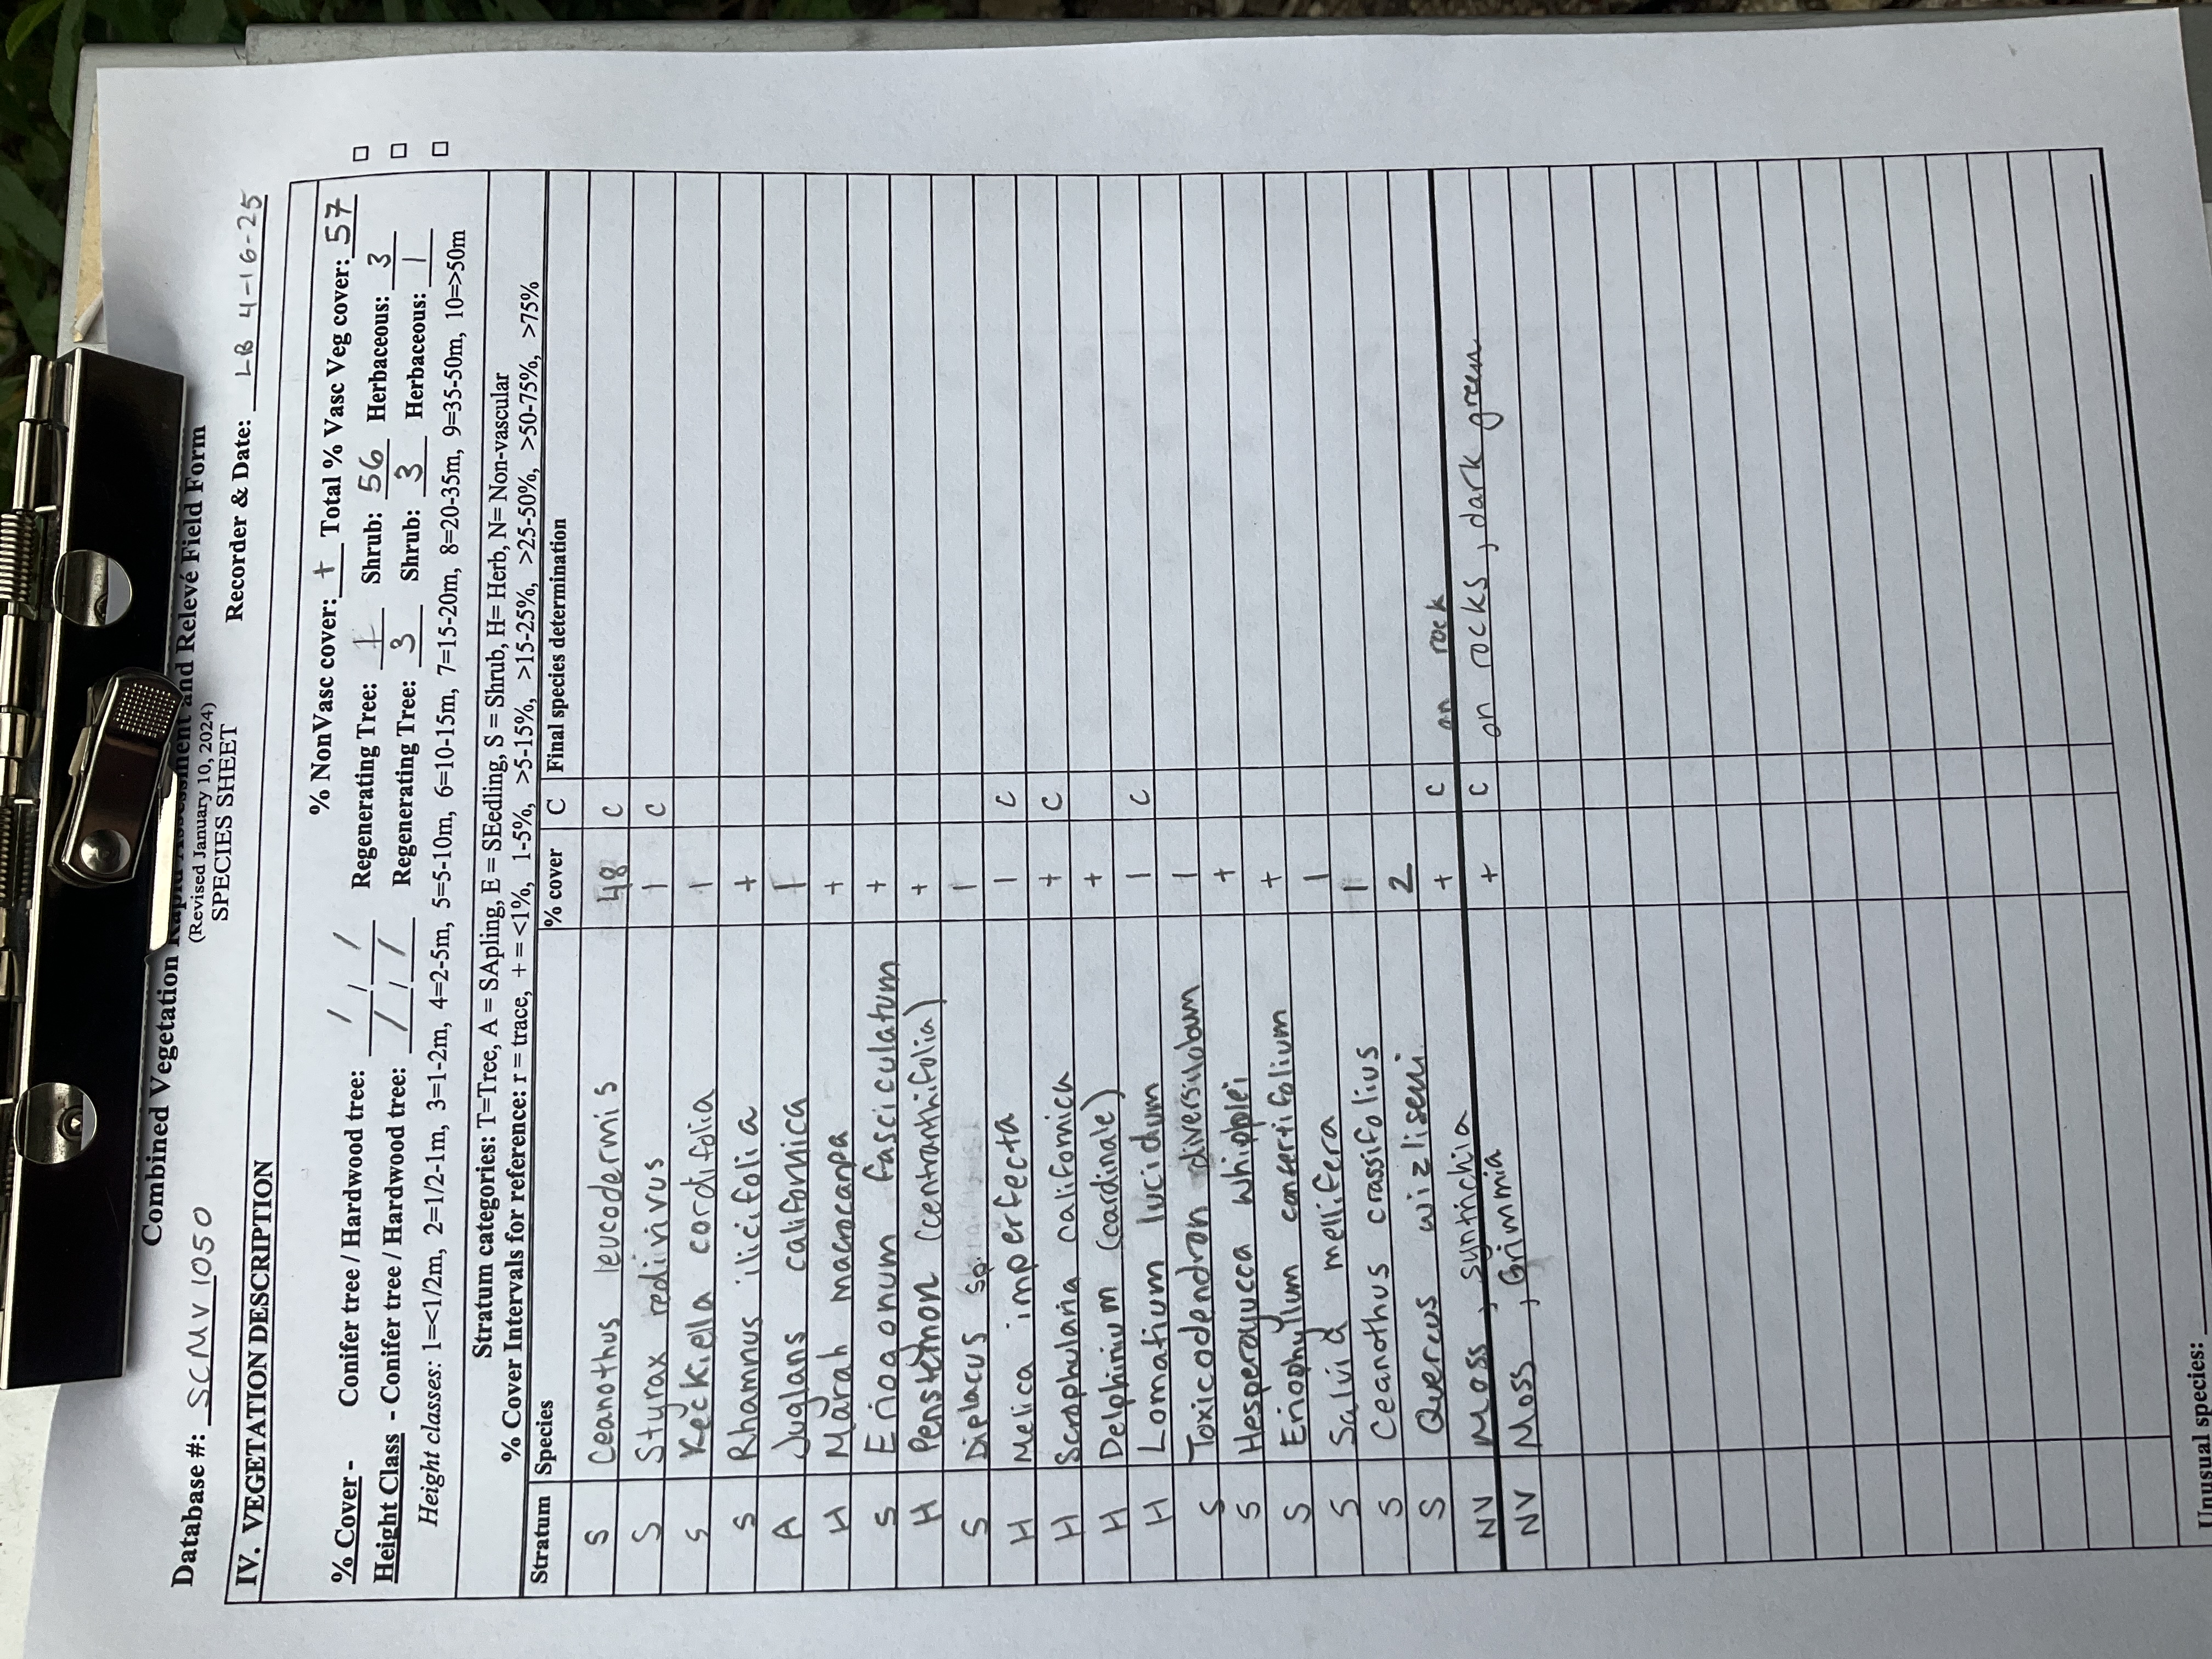 Combined Vegetation Rapid Assessment and Relevé Field Form
(Revised January 10, 2024)
SPECIES SHEET
Database #: SCMV 1050 Recorder & Date: LB 4-16-25
IV. VEGETATION DESCRIPTION
% NonVasc cover: + Total % Vasc Veg cover: 57
% Cover - Conifer tree / Hardwood tree: / Regenerating Tree: 1 Shrub: 56 Herbaceous: 3
Height Class - Conifer tree / Hardwood tree: / Regenerating Tree: 3 Shrub: 3 Herbaceous: 1
Height classes: 1=<1/2m, 2=1/2-1m, 3=1-2m, 4=2-5m, 5=5-10m, 6=10-15m, 7=15-20m, 8=20-35m, 9=35-50m, 10=>50m
Stratum categories: T=Tree, A = SApling, E = SEedling, S = Shrub, H= Herb, N= Non-vascular
% Cover Intervals for reference: r = trace, + = <1%, 1-5%, >5-15%, >15-25%, >25-50%, >50-75%, >75%
Stratum Species % cover C Final species determination
S Ceanothus leucodermis 48 C
S Styrax redivivus 1 C
S Keckiella cordifolia 1
S Rhamnus ilicifolia +
A Juglans californica 1
H Marah macrocarpa +
S Eriogonum fasciculatum +
H Penstemon (centranthifolia) +
S Diplacus sp. 1
H Melica imperfecta 1 C
H Scrophularia californica + C
H Delphinium (cardinale) +
H Lomatium lucidum 1 C
S Toxicodendron diversilobum 1
S Hesperoyucca whipplei +
S Eriophyllum confertifolium +
S Salvia mellifera 1
S Ceanothus crassifolius 1
S Quercus wizliseni 2
NV Moss, syntrichia + C on rock
NV Moss, Grimmia + C on rocks, dark green
Unusual species: